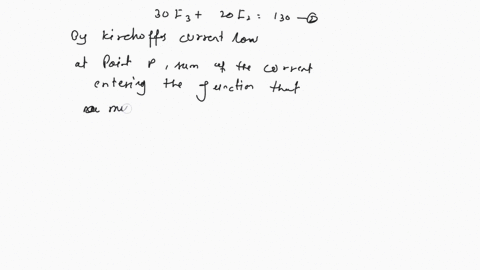 30 I3 + 20 I2 = 130 —②
By kirchoffs current low
at Point P, sum of the current
entering the function that